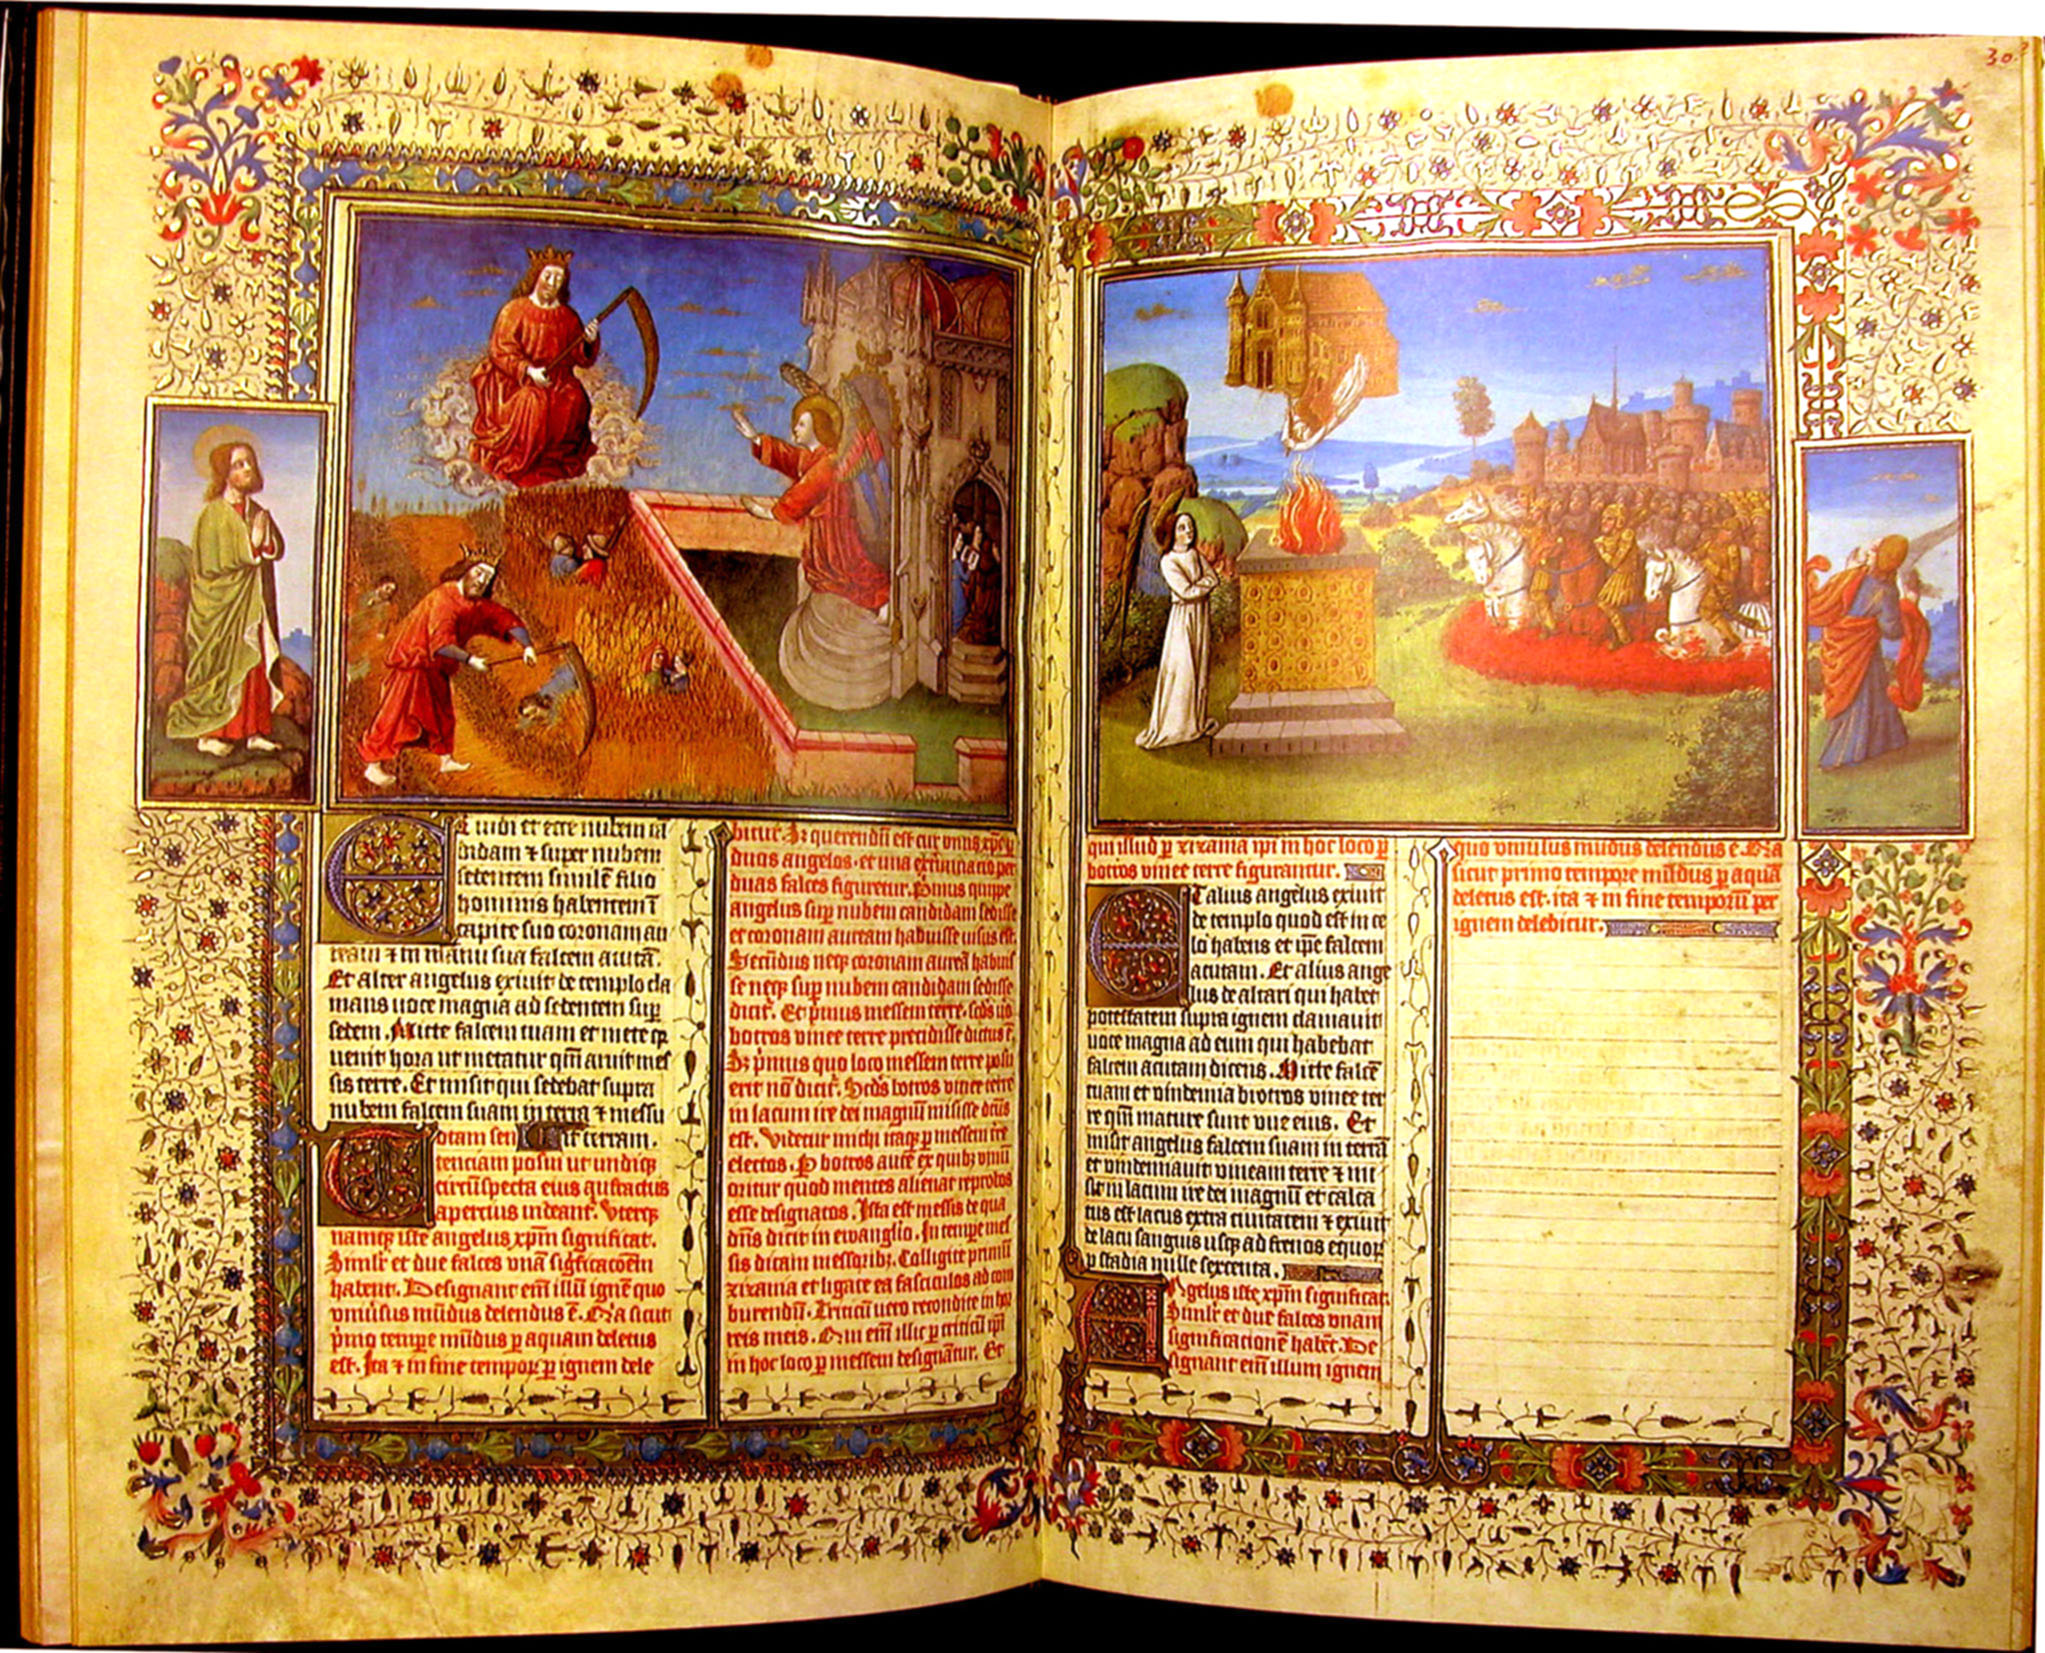 30
Et vidi et ecce nubem cā
didam ⁊ super nubem
sedentem similē filio
hominis habentem ī
capite suo coronam au
ream ⁊ in manu sua falcem acutā.
Et alter angelus exiuit de templo cla
mans uoce magna ad sedentem suꝑ
sedem. Mitte falcem tuam et mete qꝫ
uenit hora ut metatur qm̄ aruit mes
sis terre. Et misit qui sedebat supra
nubem falcem suam in terrā ⁊ messu
it terram.
Totam sen
tenciam posui ut undiqꝫ
circūspecta eius
apertius uideant. Vterqꝫ
namqꝫ iste angelus xp̄m significat.
Similr̄ et due falces unā
habent. Designant em̄ illū ignē quo
vniūsus mūdus delendus ē. Q̄a sicut
p̄mo tempe mūdus ꝑ aquam deletus
est. Ita ⁊ in fine tempoꝝ ꝑ ignem dele
bitur. Sꝫ querendū est cur vnus xp̄c ꝑ
duos angelos. et una ꝑ
duas falces figuretur. P̄mus quippe
angelus suꝑ nubem candidam sedisse
et coronam auream habuisse uisus est
Secūdus neqꝫ coronam aureā habuis
se neqꝫ suꝑ nubem candidam sedisse
dicit̄. Et p̄mus messem terre. scd̄s u̾o
botros vinee terre precidisse dictus ē.
Sꝫ p̄mus quo loco messem terre posu
erit nō dicit̄. Scd̄s botros vinee terre
in lacum ire dei magnum misisse dc̄us
est. Videtur michi itaqꝫ ꝑ messem t̄re
electos. Ꝑ botros aut̄e ex quibꝫ vinū
oritur quod mentes alienat reprobos
esse designatos. Ista est messis de qua
dn̄s dicit in ewanglio. In tempe mes
sis dicam messoribꝫ. Colligite primū
zizania et ligate ea fasciculos ad com
burendū. Triticū uero recondite in hor
reis meis. Qui em̄ illic ꝑ triticū ip̄i
in hoc loco ꝑ messem designātur. Et
qui illud ꝑ zizania ip̄i in hoc loco ꝑ
botros vinee terre figurantur.
Et alius angelus exiuit
de templo quod est in ce
lo habens et ip̄e falcem
acutam. Et alius ange
lus de altari qui habet
potestatem supra ignem clamauit
uoce magna ad eum qui habebat
falcem acutam dicens. Mitte falcē
tuam et vindemia botros vinee ter
re qm̄ mature sunt vue eius. Et
misit angelus falcem suam in terrā
et vindemiauit vineam terre ⁊ mi
sit in lacum ire dei magnū et calca
tus est lacus extra ciuitatem ⁊ exiuit
de lacu sanguis usqꝫ ad frenos equoꝝ
ꝑ stadia mille sexcenta.
Angelus iste xp̄m significat.
Similr̄ et due falces vnam
significacionē habēt. De
signant em̄ illum ignem
quo vniūsus mūdus delendus ē. Q̄a
sicut primo tempore mūdus ꝑ aquā
deletus est. ita ⁊ in fine temporū per
ignem delebitur.